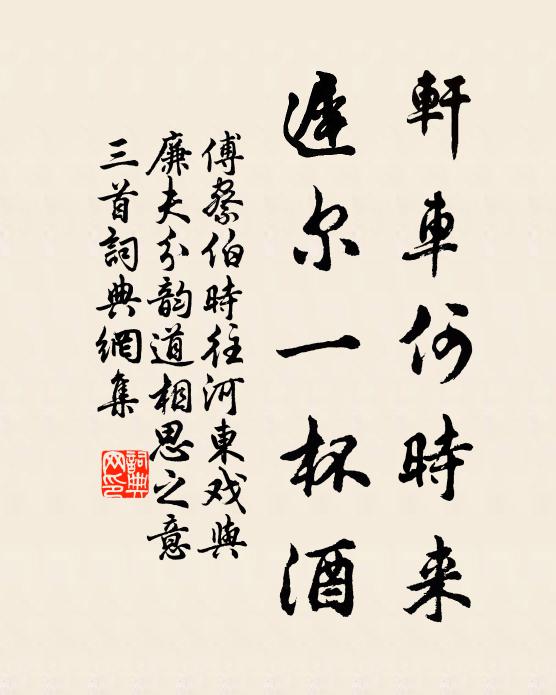 軒車何時来
遲尔一杯酒
傅蔡伯時往河東戏與
廉夫分韵道相思之意
三首詞典網集
詞典网印